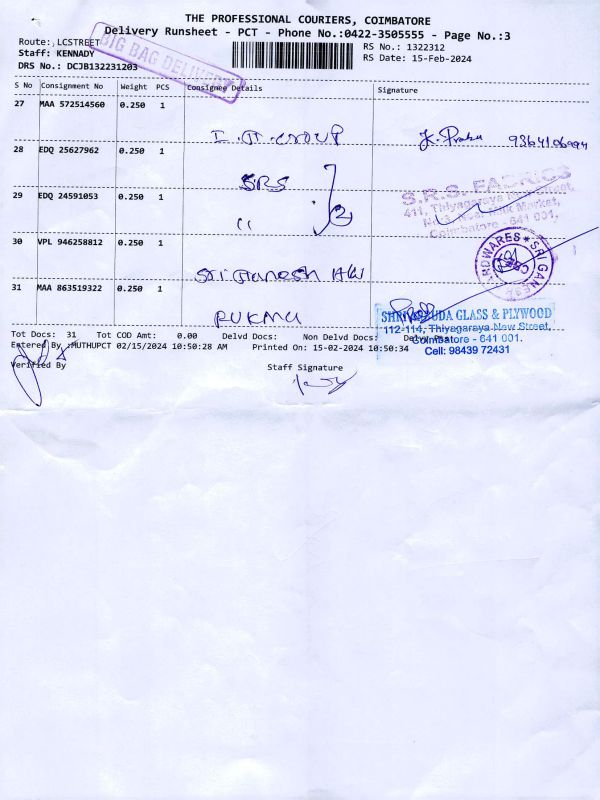 THE PROFESSIONAL COURIERS, COIMBATORE
Delivery Runsheet - PCT - Phone No.:0422-3505555 - Page No.:3
Route: LCSTREET
RS No.: 1322312
Staff: KENNADY
RS Date: 15-Feb-2024
DRS No.: DCJB132231203
BIG BAG DELIVERY
S No Consignment No Weight PCS Consignee Details Signature
27 MAA 572514560 0.250 1
28 EDQ 25627962 0.250 1
SRS
29 EDQ 24591053 0.250 1
"
2
S.R.S. FABRICS
411, Thiyagaraya Street,
Market,
Coimbatore - 641 001.
30 VPL 946258812 0.250 1
Sri Ganesh HW
SRI GANESH HARDWARES
CBE-1
31 MAA 863519322 0.250 1
SHRI GARUDA GLASS & PLYWOOD
112-114, Thiyagaraya New Street,
Coimbatore - 641 001.
Cell: 98439 72431
Tot Docs: 31 Tot COD Amt: 0.00 Delvd Docs: Non Delvd Docs:
Entered By :MUTHUPCT 02/15/2024 10:50:28 AM Printed On: 15-02-2024 10:50:34
Verified By Staff Signature